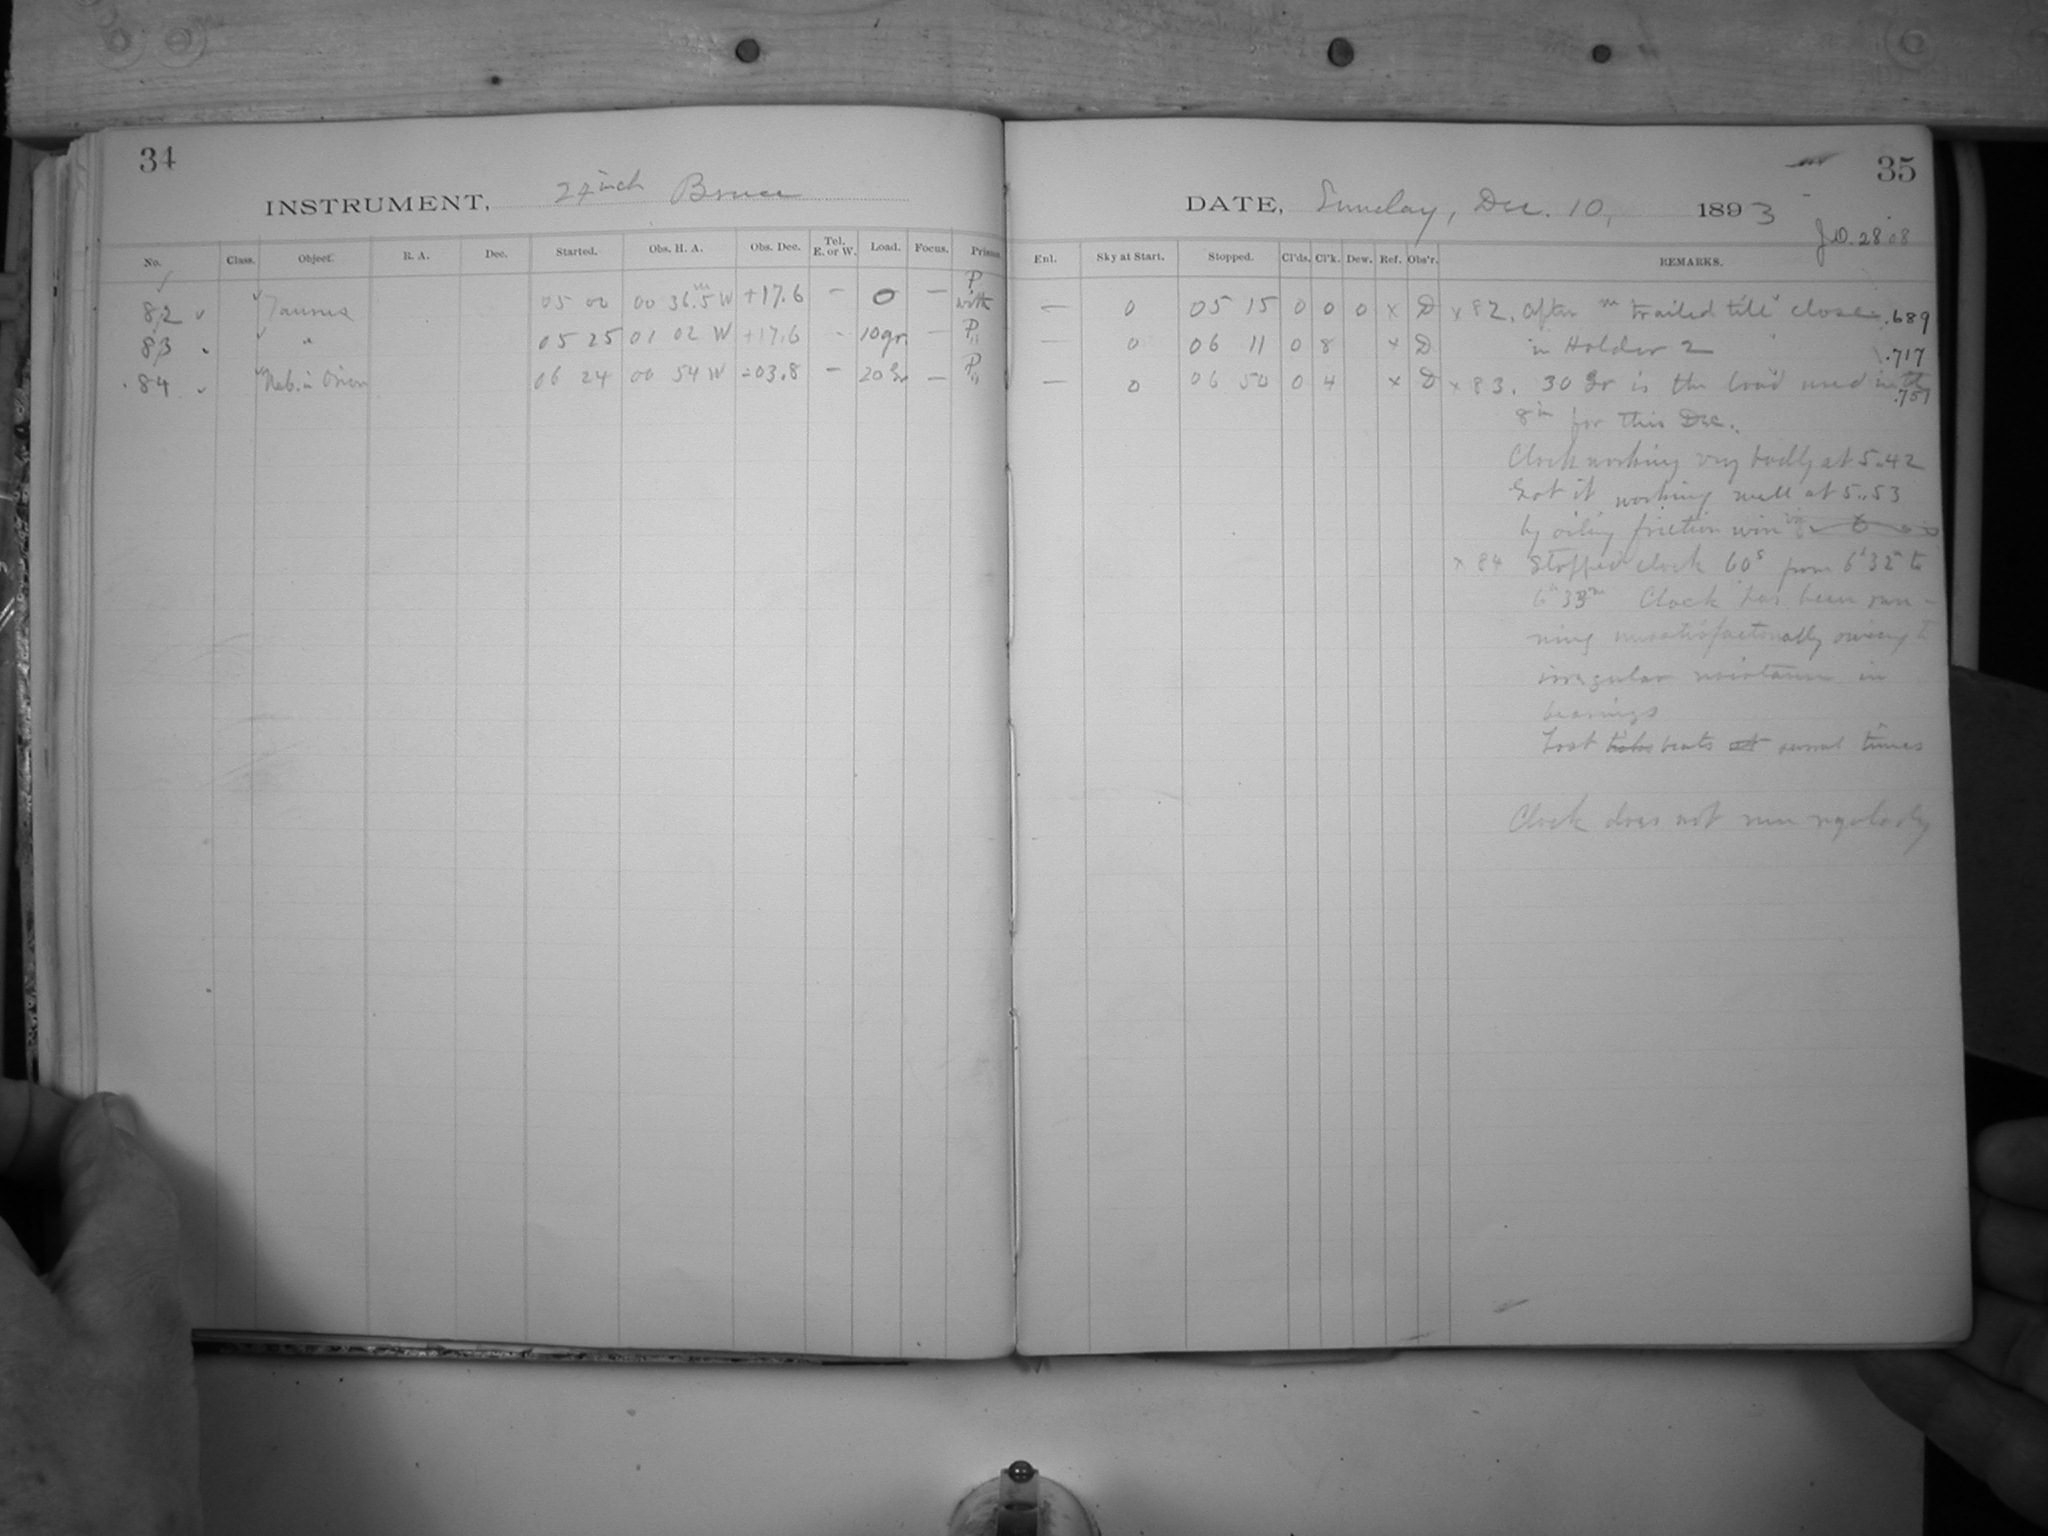 34
INSTRUMENT, 24 inch Bruce
No. Class. Object. R. A. Dec. Started. Obs. H. A. Obs. Dec. Tel. E. or W. Load. Focus. Prisms.
82 Taurus 05 00 00 36.5 W +17.6 – 0 – P with
83 " 05 25 01 02 W +17.6 – 10 gr. – P "
84 Neb. in Orion 06 24 00 54 W -03.8 – 20 gr – P "
35
DATE, Sunday, Dec. 10, 1893
J.D. 2808
Enl. Sky at Start. Stopped. Cl'ds. Cl'k. Dew. Ref. Obs'r. REMARKS.
— 0 05 15 0 0 0 x D x 82. After "trailed till" close .689
— 0 06 11 0 8 x D in Holder 2 .717
— 0 06 50 0 4 x D x 83. 30 gr is the load used in the
8 in for this Dec.
Clock working very badly at 5.42
Got it working well at 5.53
by oiling friction
x 84 Stopped clock 60s from 6h 32m to
6h 33m Clock has been run-
ning unsatisfactorally owing to
irregular resistance in
bearings
Lost beats several times
Clock does not run regularly